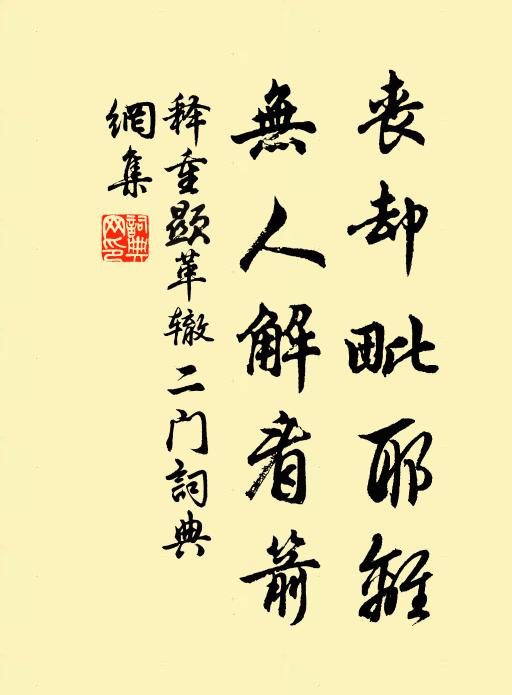 丧却毗耶離
無人解看箭
释重顯革辙二门詞典
網集
詞典網印